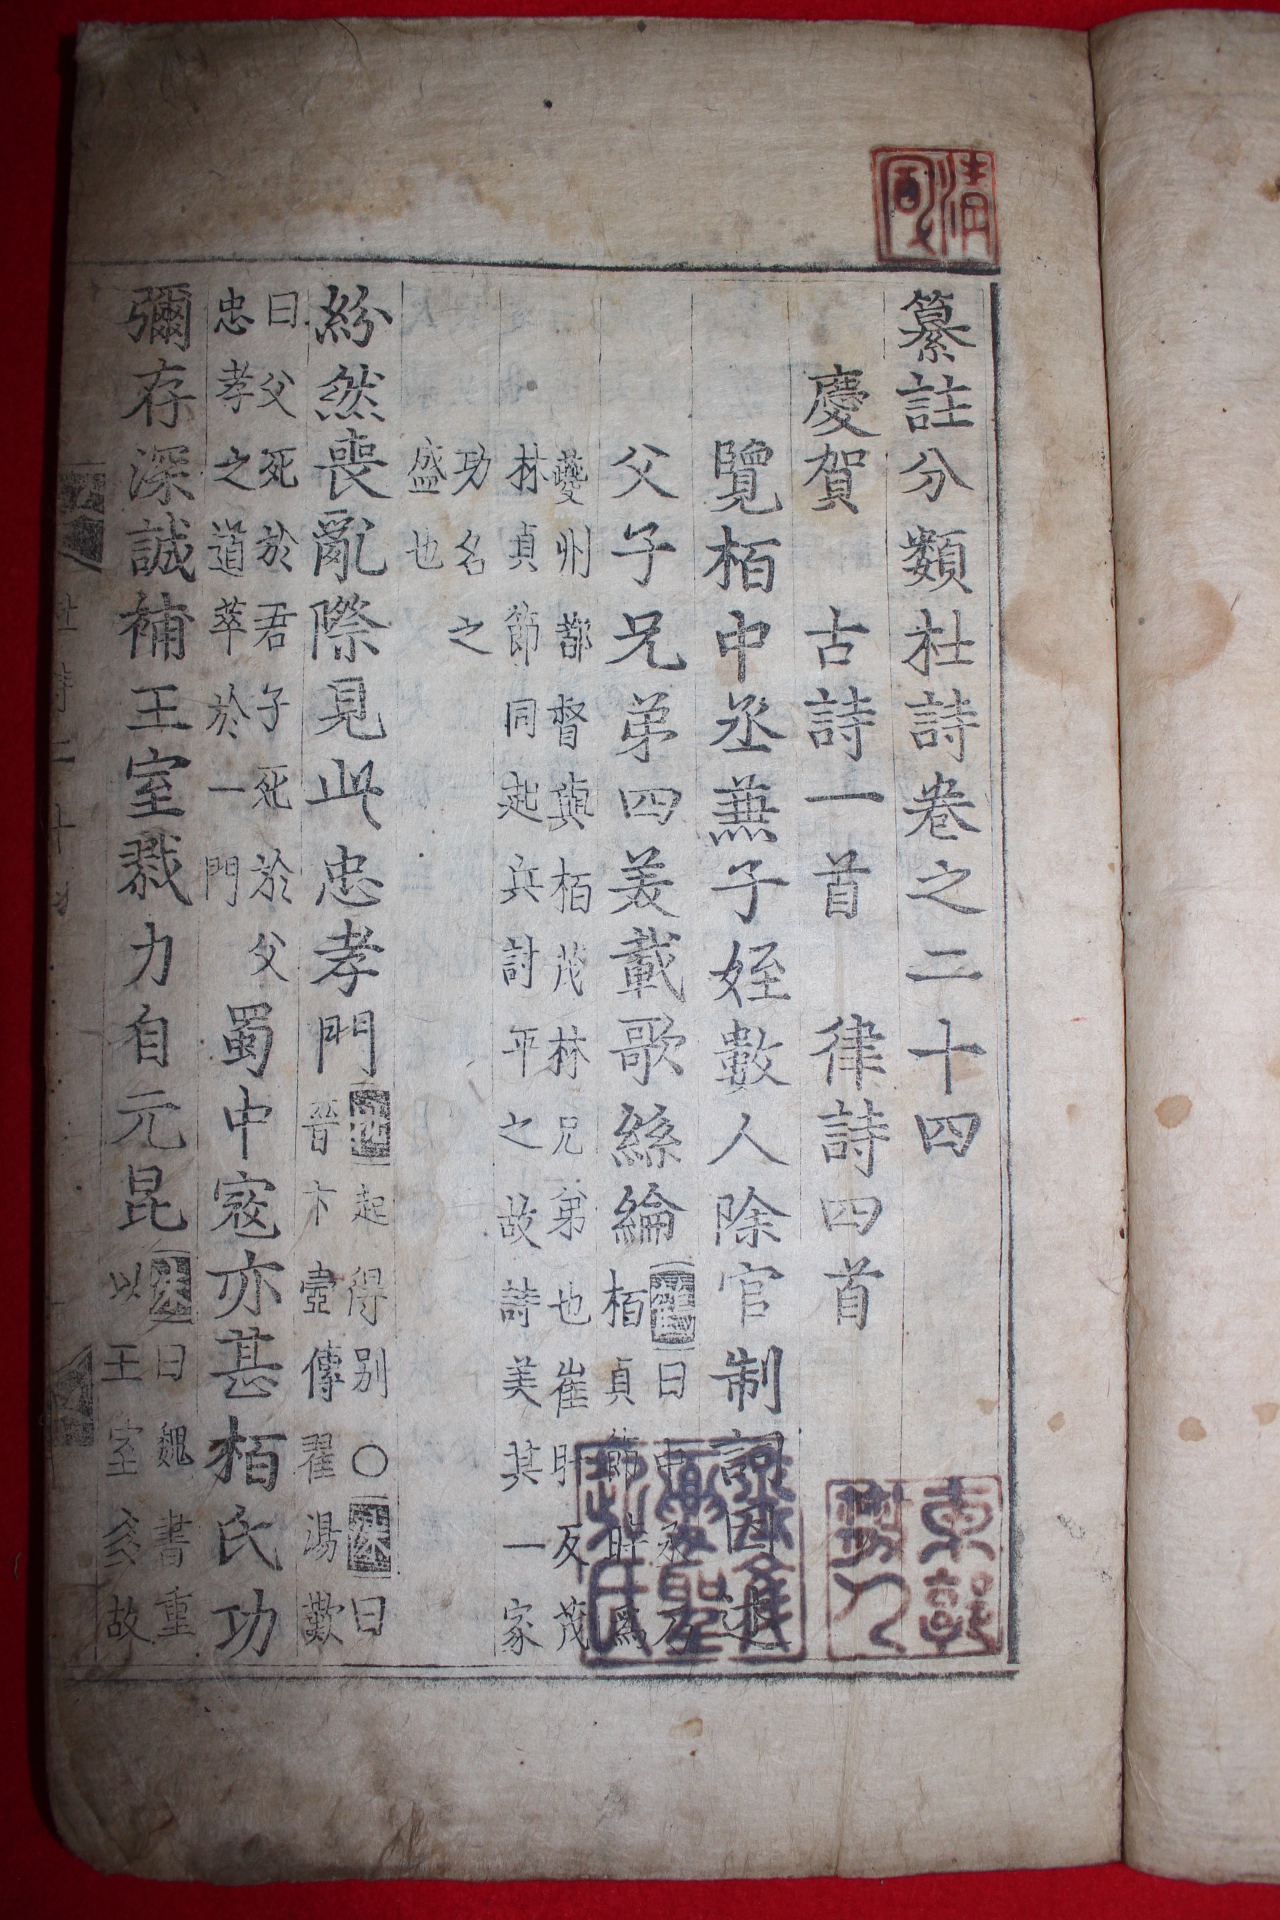 纂註分類杜詩卷之二十四
慶賀　古詩一首　律詩四首
覽栢中丞兼子姪數人除官制詞因述
父子兄弟四美載歌絲綸
曰中丞乃
栢貞節時爲
夔州都督龔栢茂林兄弟也崔旰反茂
林貞節同起兵討平之故詩美其一家
功名之
盛也
紛然喪亂際見此忠孝門
起得别○
曰
晉卞壼傳翟湯歎
曰父死於君子死於父
忠孝之道萃於一門
蜀中寇亦甚栢氏功
彌存深誠補王室戮力自元昆
曰魏書重
以王室多故
杜詩二十四